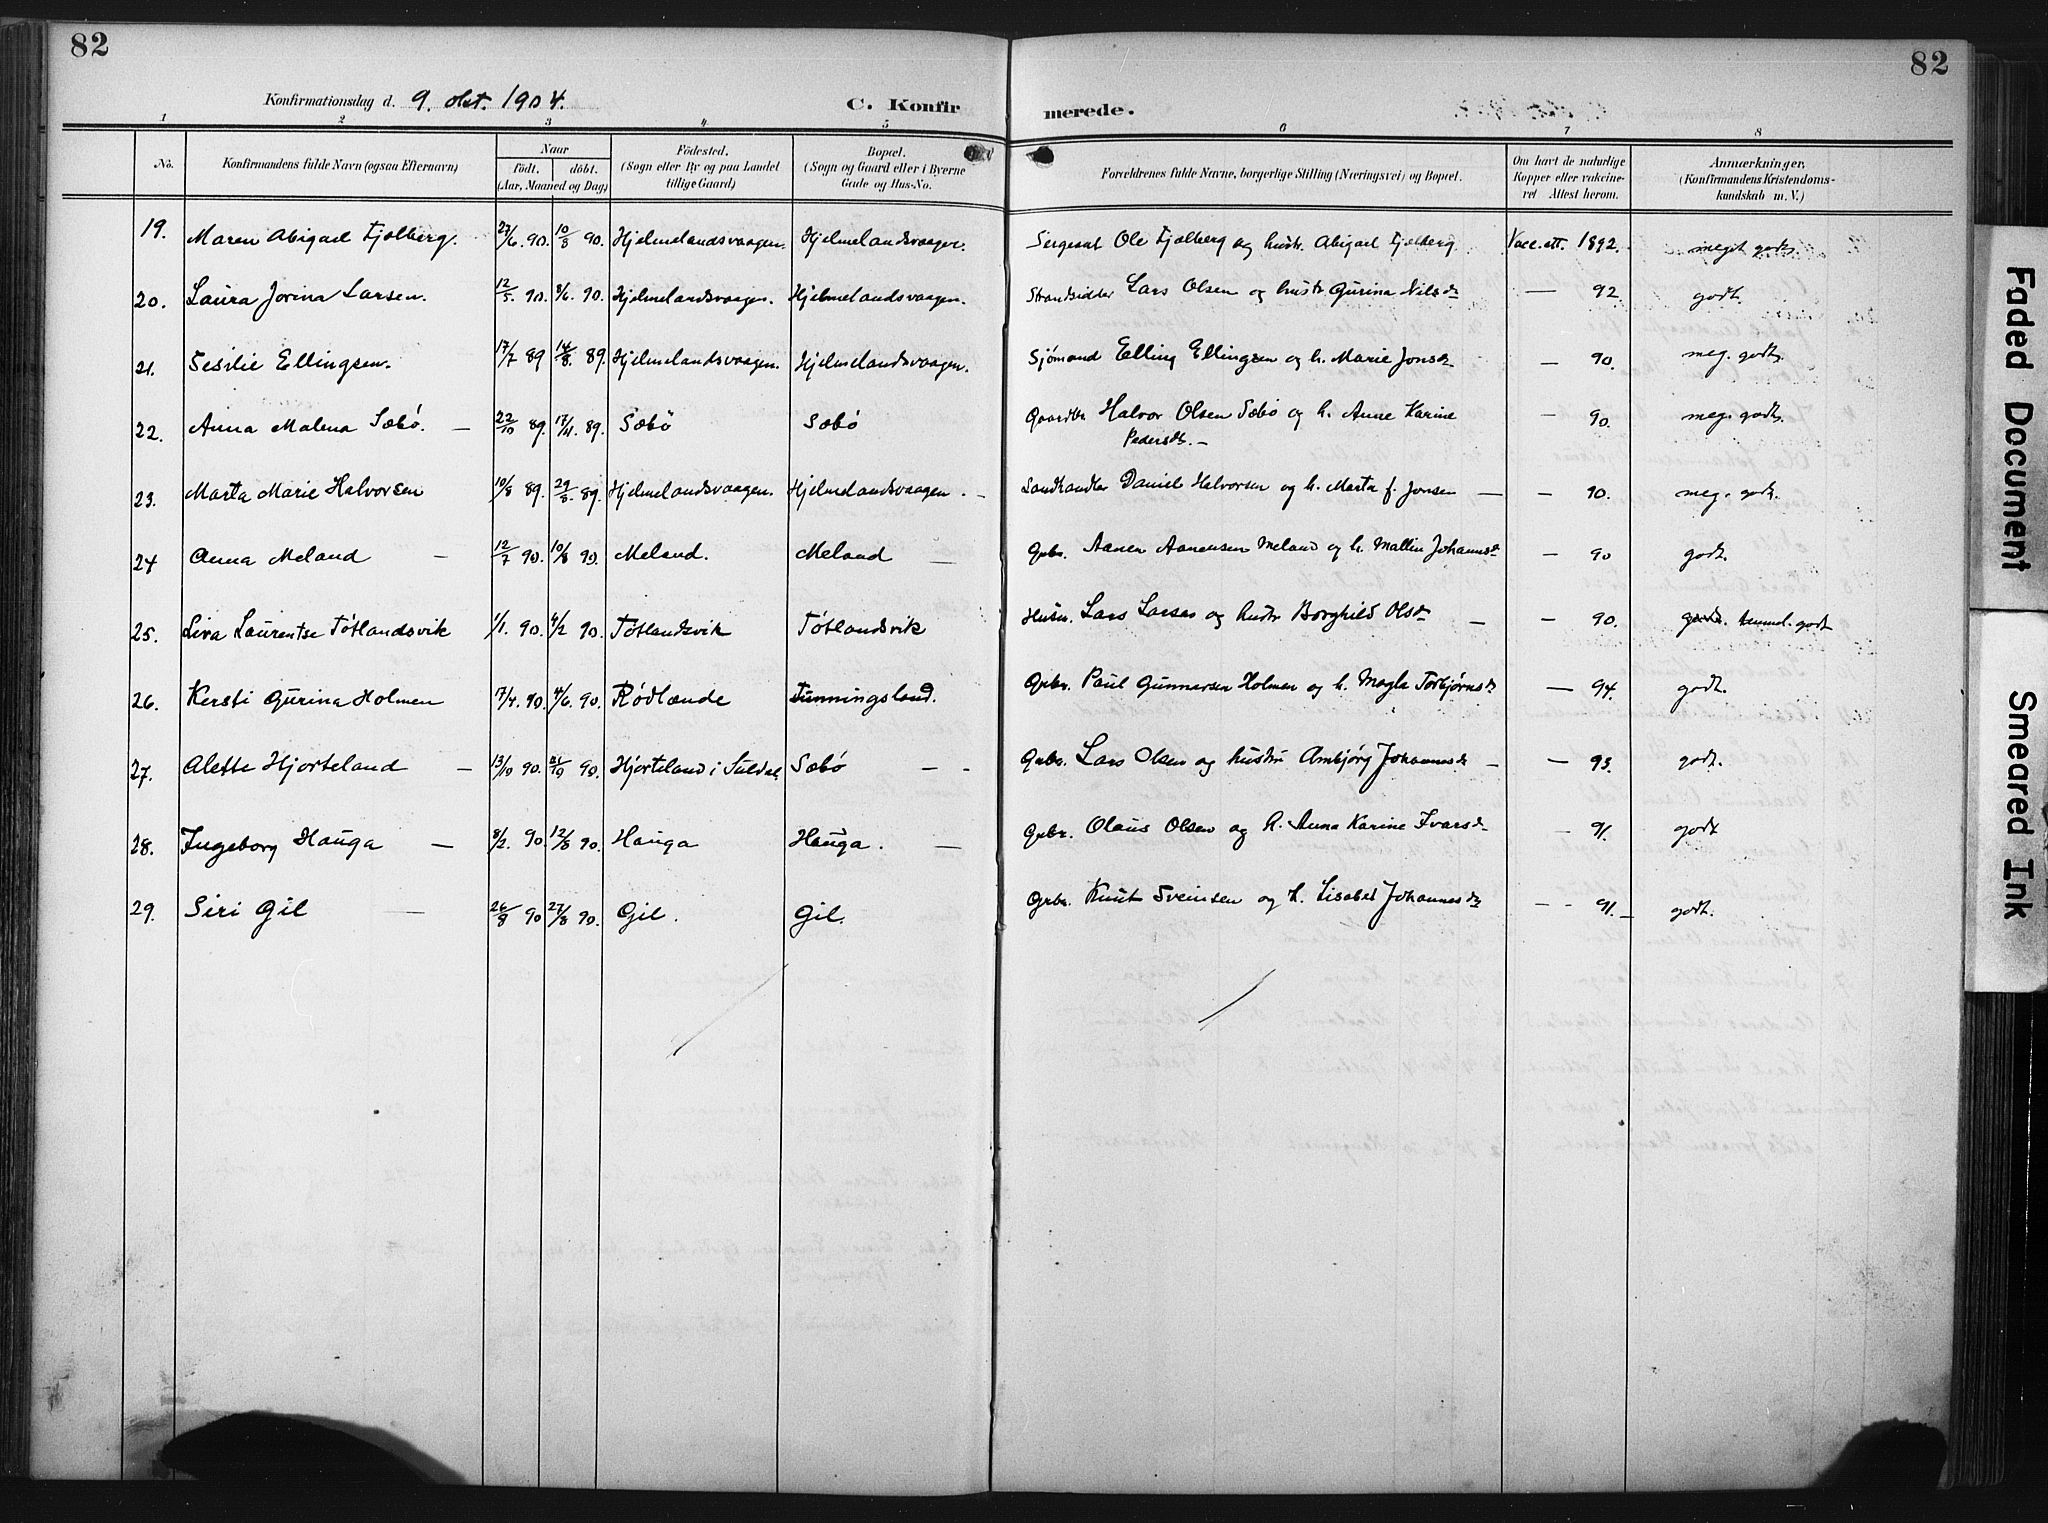 82
82
Konfirmationsdag d. 9. okt. 1904.
C. Konfirmerede.
1 2 3 4 5 6 7 8
No.
Konfirmandens fulde Navn (ogsaa Efternavn)
Naar
födt. döbt.
(Aar, Maaned og Dag)
Födested.
(Sogn eller By og paa Landet
tillige Gaard)
Bopæl.
(Sogn og Gaard eller i Byerne
Gade og Hus-No.
Forældrenes fulde Navne, borgerlige Stilling (Næringsvei) og Bopæl.
Om havt de naturlige
Kopper eller vakcine-
ret Attest herom.
Anmærkninger,
(Konfirmandens Kristendoms-
kundskab m. V.)
19. Maren Abigael Fjelberg. 27/6. 90. 10/8 90. Hjelmelandsvaagen. Hjelmelandsvaagen. Sergeant Ole Fjelberg og hustr. Abigael Fjelberg Vacc. att. 1892. meget godt.
20. Laura Jorina Larsen. 12/5. 90. 8/6. 90. Hjelmelandsvaagen. Hjelmelandsvaagen. Strandsidder Lars Olsen og hustr Gurina Nilsdt — 92. godt.
21. Sesilie Ellingsen. 17/7 89 14/8. 89. Hjelmelandsvaagen. Hjelmelandsvaagen. Sjömand Elling Ellingsen og h. Marie Jonsdt — 90. meg. godt.
22. Anna Malena Sæbö. — 22/10 89. 17/11. 89. Sæbö Sæbö Gaardbr Halvor Olsen Sæbö og h. Anne Karine — 90. meg. godt.
Pedersdt. —
23. Marta Marie Halvorsen 10/8 89. 29/8. 89. Hjelmelandsvaagen. Hjelmelandsvaagen. — Landhandler Daniel Halvorsen og h. Marta f. Jonsen — — 90. meg. godt.
24 Anna Meland — 12/7 90. 10/8 90. Meland. Meland — Grbr. Aanen Aanensen Meland og h. Mallin Johannsdt — 90 godt.
25. Liva Laurentse Tötlandsvik 1/1. 90. 4/2 90. Tötlandsvik Tötlandsvik Husm. Lars Larsen og hustr Borghild Olsdt — — 90. godt. temmel. godt
26. Kersti Gurina Holmen 17/4. 90. 4/6. 90. Rödlænde Funningsland. Grbr. Paul Gunnarsen Holmen og h. Magla Torbjörnsdt — 94. godt.
27. Alette Hjorteland — 13/10 90. 90. Hjorteland i Suldal Sæbö — - Grbr. Lars Olsen og hustru Ambjörg Johannesdt — — 93. godt.
28. Ingeborg Hauga — 8/2. 90. 12/8 90. Hauga Hauga. — Grbr. Olaus Olsen og h. Anna Karine Ivarsdt — 91. godt
29. Siri Gil — 26/8 90 27/8 90. Gil. Gil. Grbr. Knut Sveinsen og h. Lisabet Johannesdt - - 91. — godt.
Faded Document
Smeared Ink